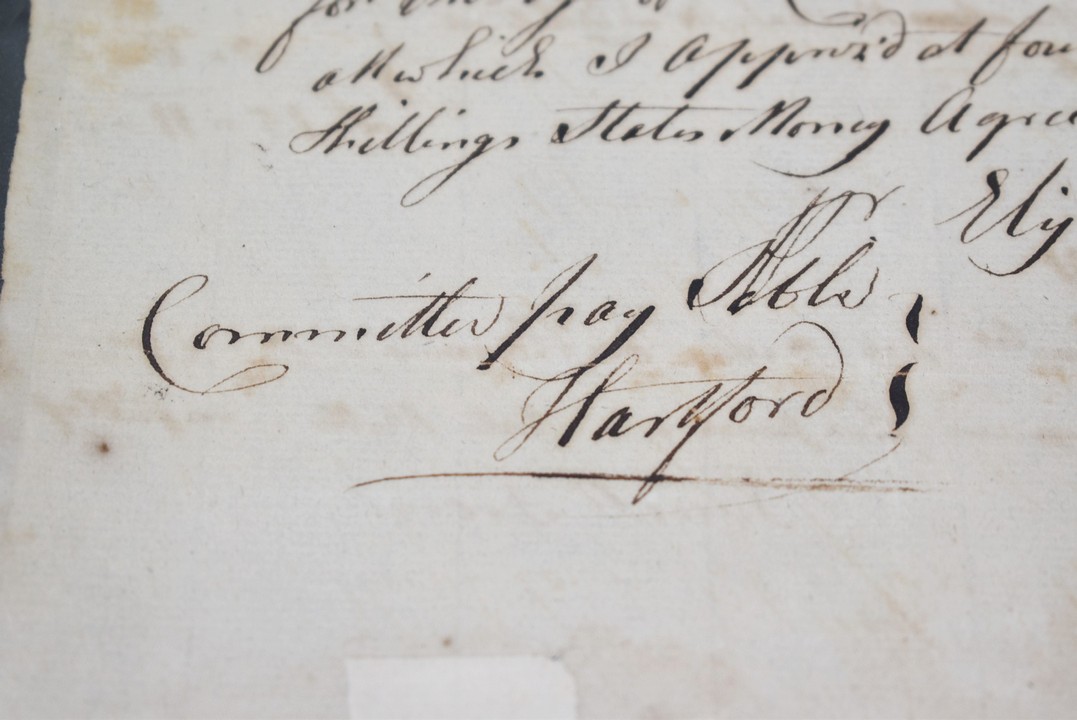 for the
all which I Apprviz'd at four
Shillings States Money Agree
pr Elij
Committee pay Table
Hartford